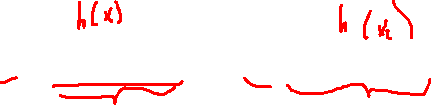 h(x) h(x₂)